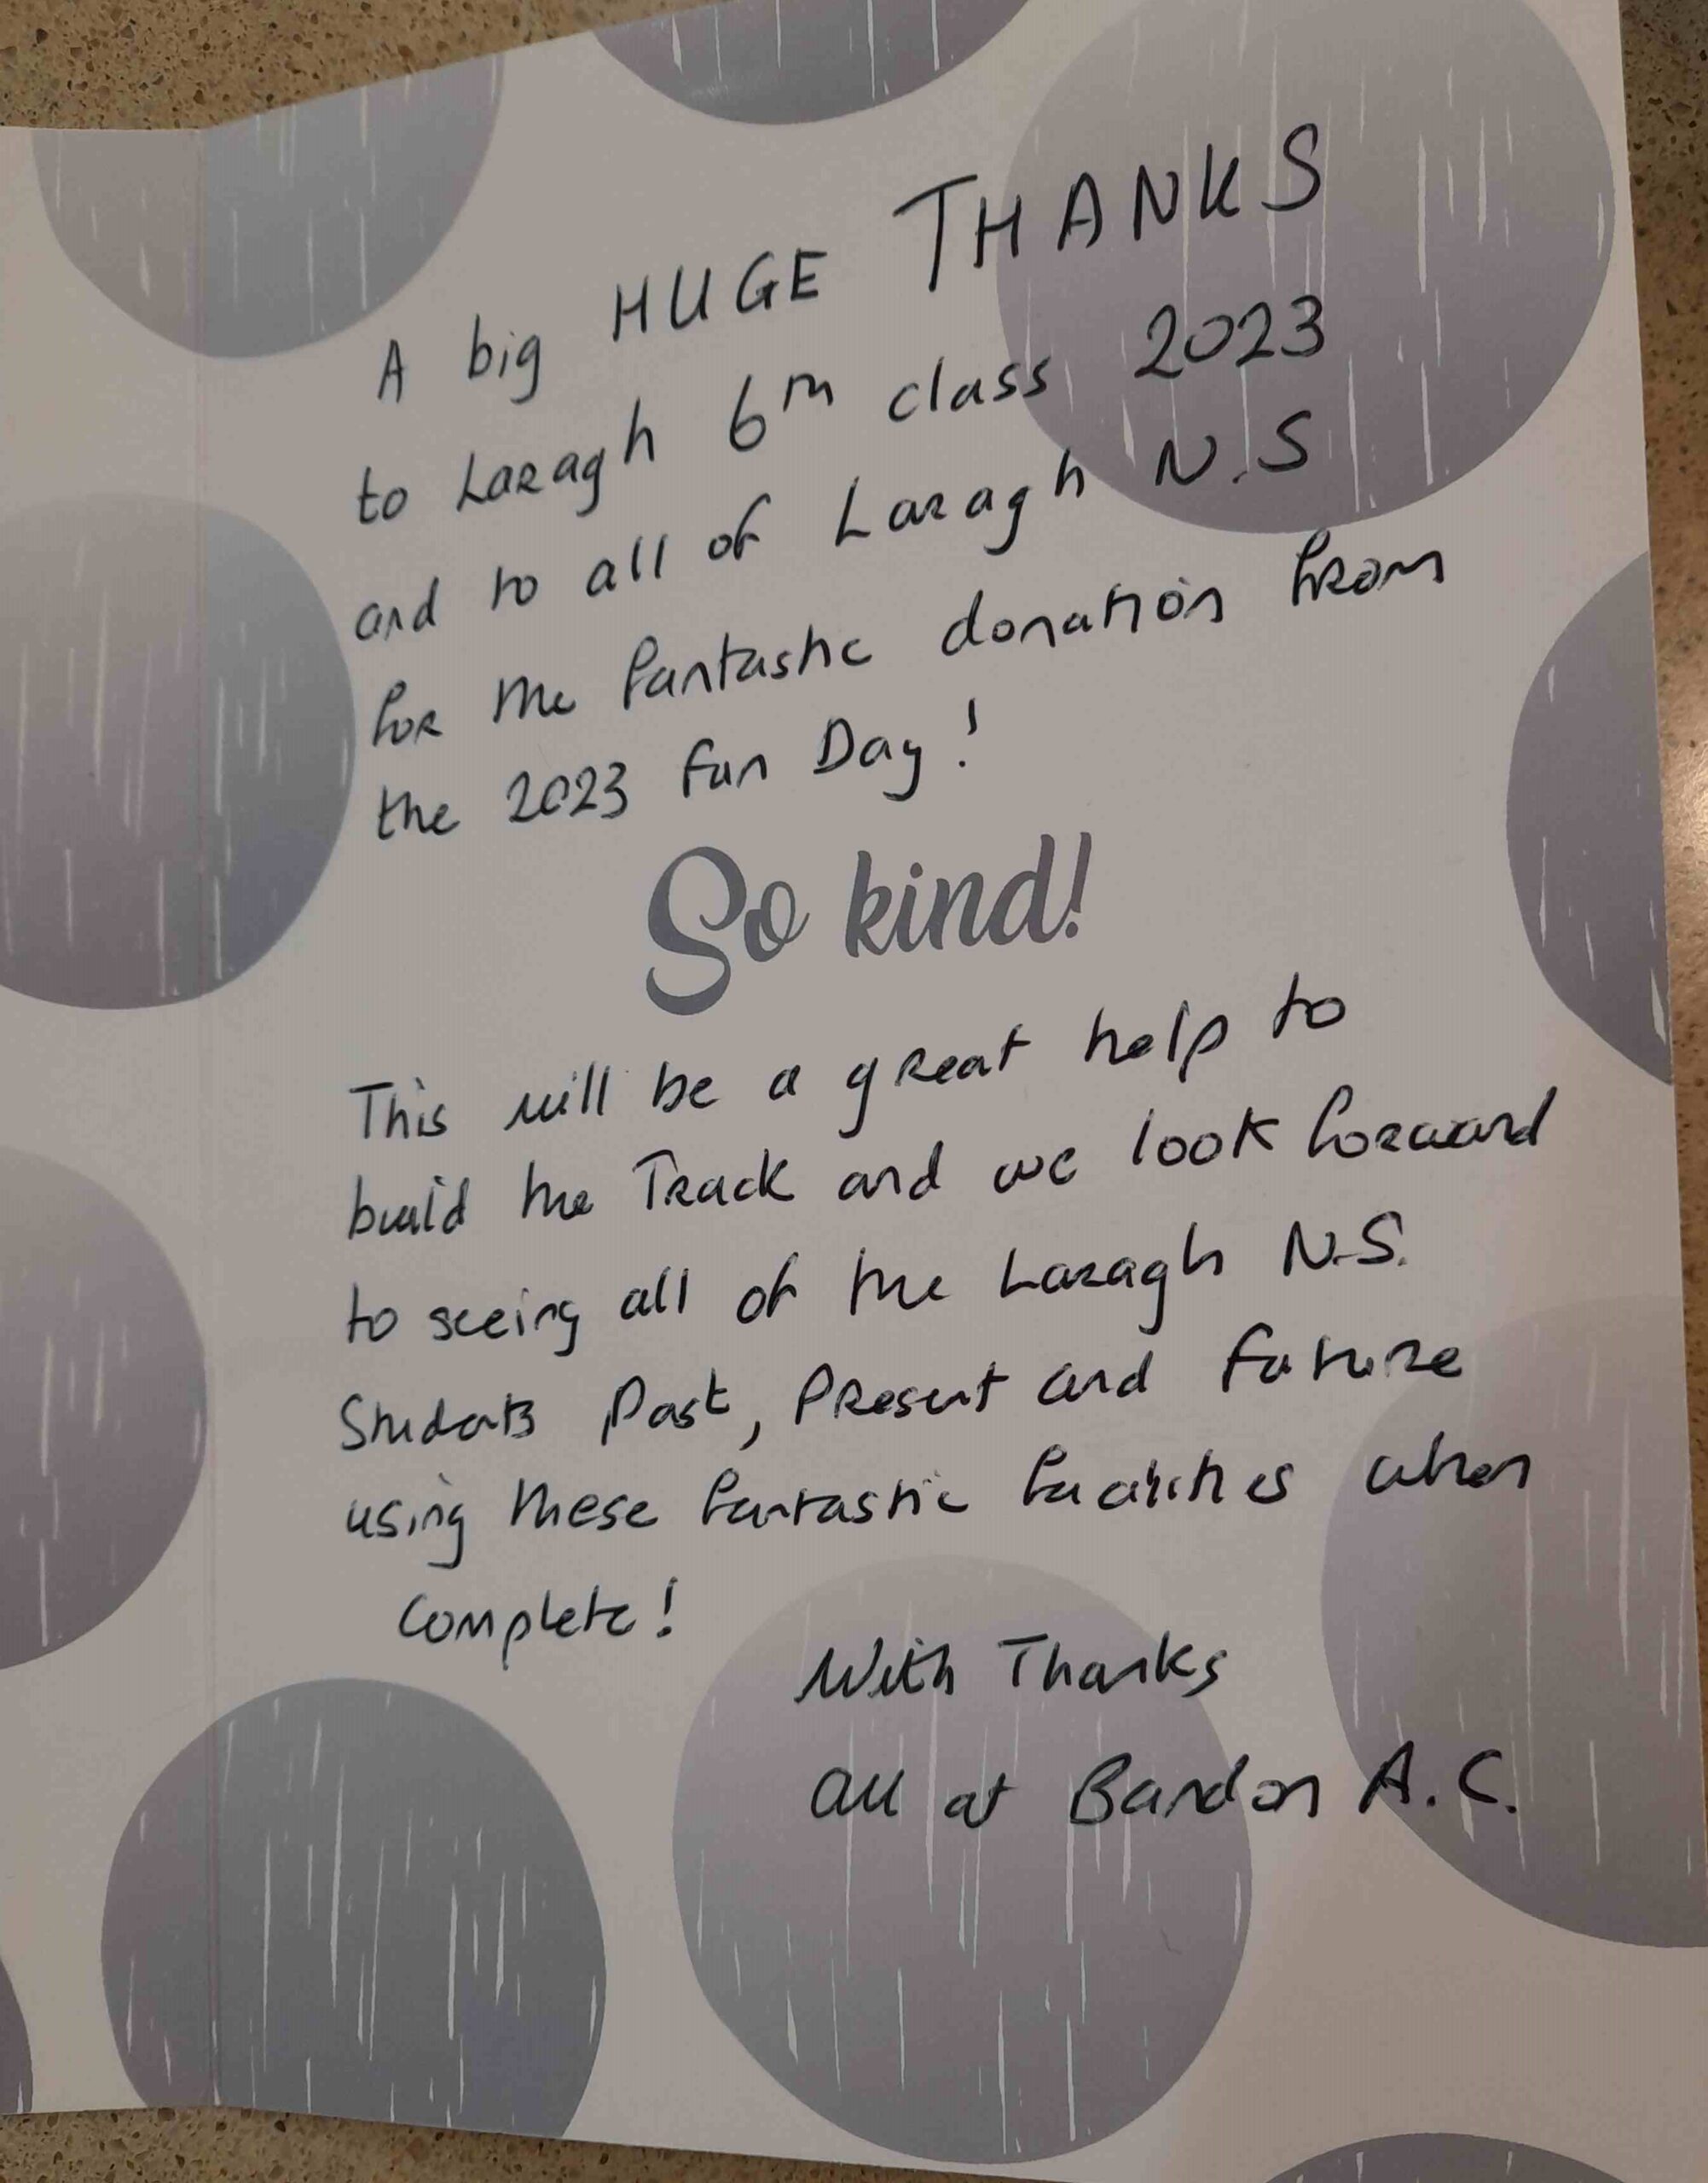 A big HUGE THANKS
to Laragh 6th class 2023
and to all of Laragh N.S
for the fantastic donation from
the 2023 Fun Day!
So kind!
This will be a great help to
build the Track and we look forward
to seeing all of the Laragh N.S.
Students Past, Present and Future
using these fantastic facilities when
Complete!
With Thanks
all at Bandon A.C.